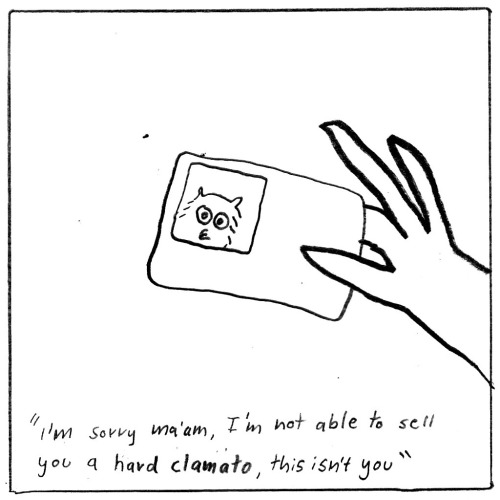 "I'm sorry ma'am, I'm not able to sell
you a hard clamato, this isn't you"